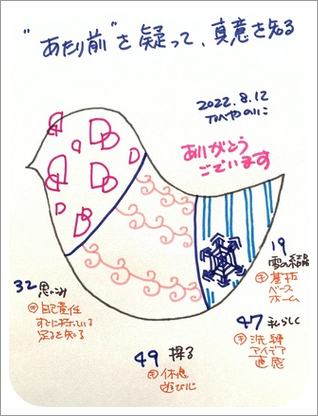 "あたり前"を疑って、真意を知る
2022.8.12
ありがとう
ございます
19
雪の結晶
基板
ベース
ホーム
32 思い込み
自己責任
すでに持っている
足るを知る
47 私らしく
洗練
アイデア
直感
49 探る
休息
遊び心